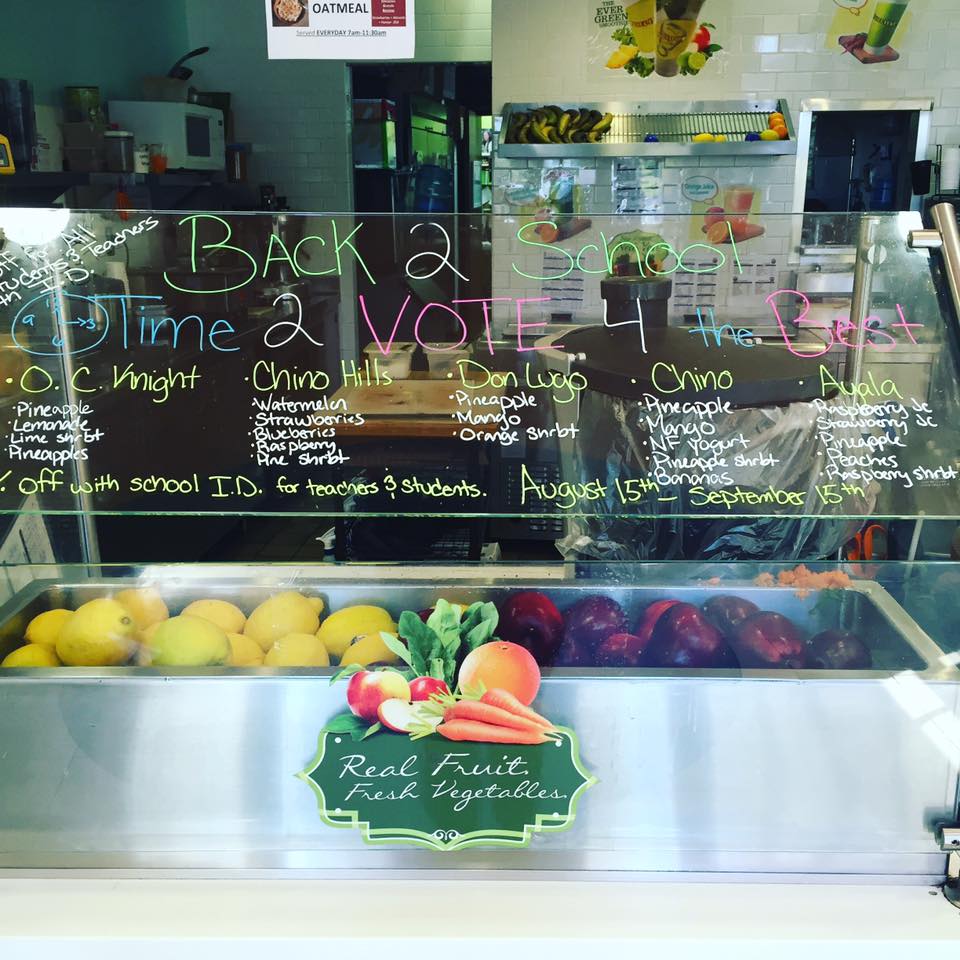 OATMEAL
Served EVERYDAY 7am-11:30am
THE
EVER
GREEN
SMOOTHIE
Orange Juice
off for All
Students & Teachers
with I.D.
BACK 2 School
9 3 Time 2 VOTE 4 the Best
·O.C Knight
·Pineapple
·Lemonade
·Lime shrbt
·Pineapples
·Chino Hills
·Watermelon
·Strawberries
·Blueberries
·Raspberry
·Pine shrbt
·Don Lugo
·Pineapple
·Mango
·Orange shrbt
·Chino
·Pineapple
·Mango
·NF Yogurt
·Pineapple shrbt
·Bananas
·Ayala
·Raspberry Jc
·Strawberry Jc
·Pineapple
·Peaches
·Raspberry shrbt
% off with school I.D. for teachers & students. August 15th - September 15th
Real Fruit.
Fresh Vegetables.